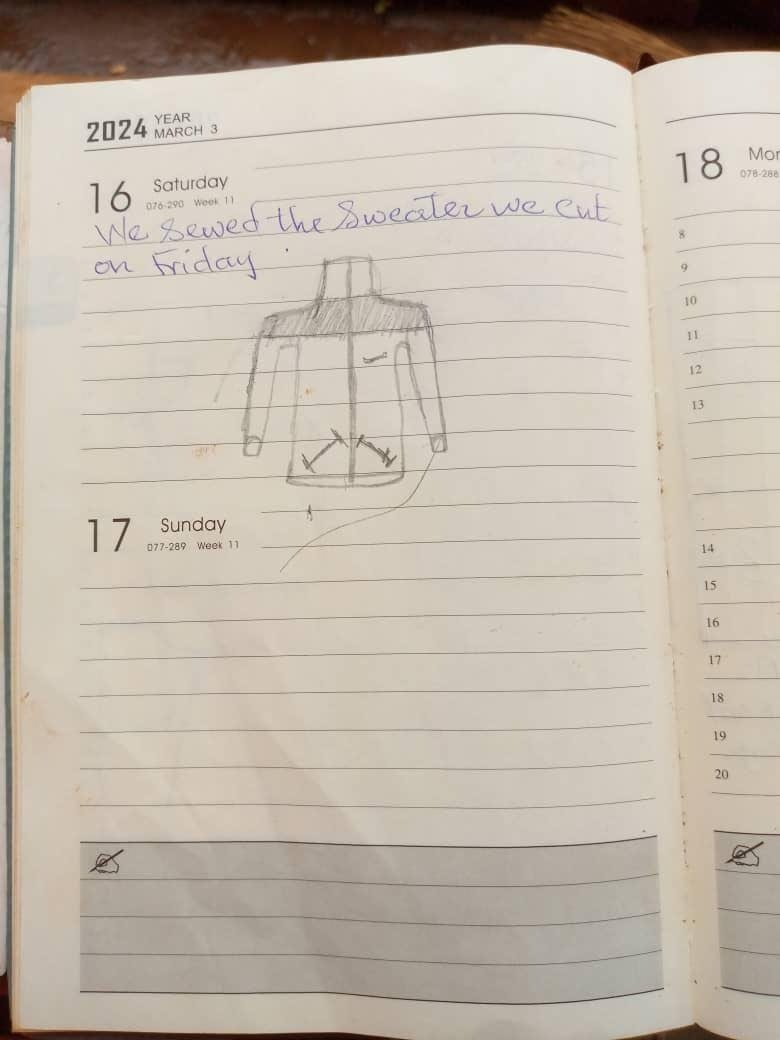 2024 YEAR
MARCH 3
16 Saturday
076-290 Week 11
We sewed the sweater we cut
on Friday.
17 Sunday
077-289 Week 11
18 Mon
078-288
8
9
10
11
12
13
14
15
16
17
18
19
20